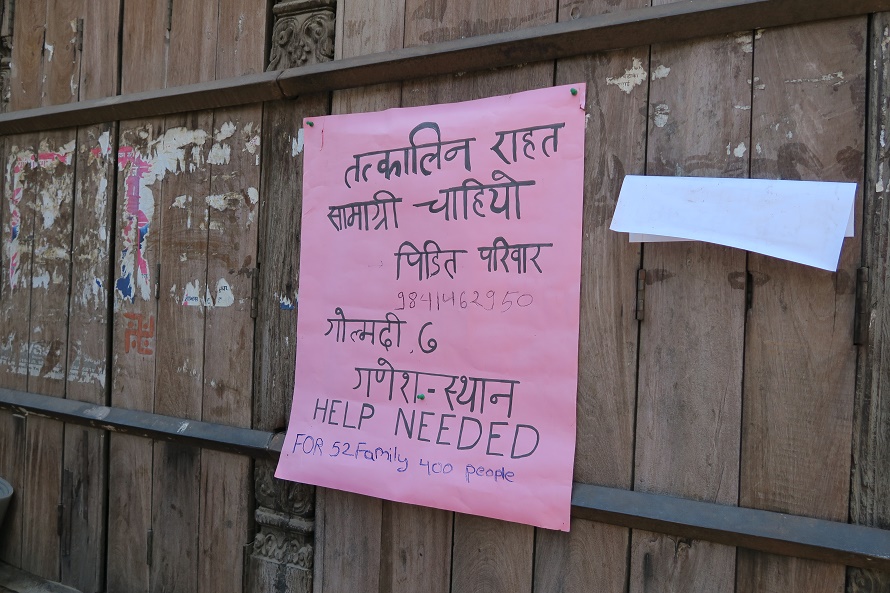 तत्कालिन राहत
सामाग्री चाहियो
पिडित परिवार
9841462950
गोल्मढी, ७
गणेश-स्थान
HELP NEEDED
FOR 52 Family 400 people